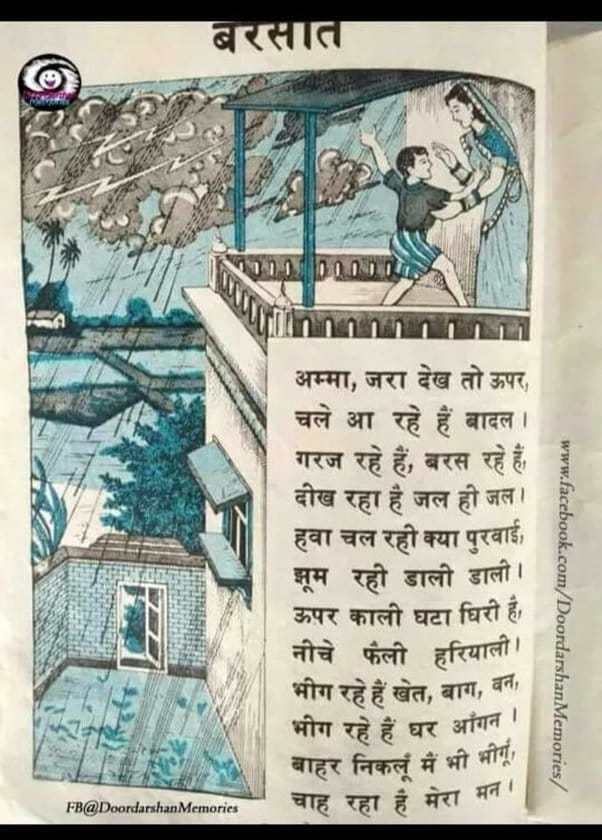 बरसात
अम्मा, जरा देख तो ऊपर,
चले आ रहे हैं बादल ।
गरज रहे हैं, बरस रहे हैं,
दीख रहा है जल ही जल।
हवा चल रही क्या पुरवाई,
झूम रही डाली डाली ।
ऊपर काली घटा घिरी है,
नीचे फैली हरियाली।
भीग रहे हैं खेत, बाग, वन,
भीग रहे हैं घर आँगन ।
बाहर निकलूँ मैं भी भीगूँ,
चाह रहा है मेरा मन ।
www.facebook.com/DoordarshanMemories/
FB@DoordarshanMemories